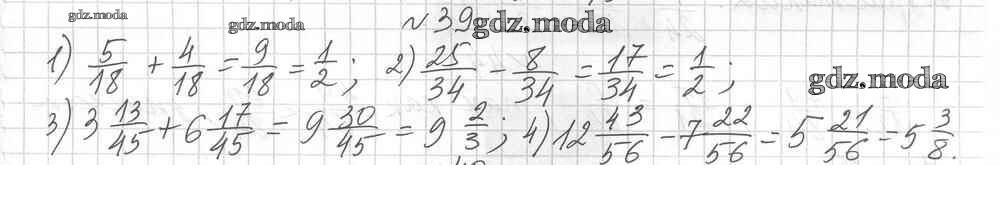 gdz.moda
gdz.moda
№ 39 gdz.moda
1) 5/18 + 4/18 = 9/18 = 1/2; 2) 25/34 - 8/34 = 17/34 = 1/2;
gdz.moda
3) 3 13/45 + 6 17/45 = 9 30/45 = 9 2/3; 4) 12 43/56 - 7 22/56 = 5 21/56 = 5 3/8.